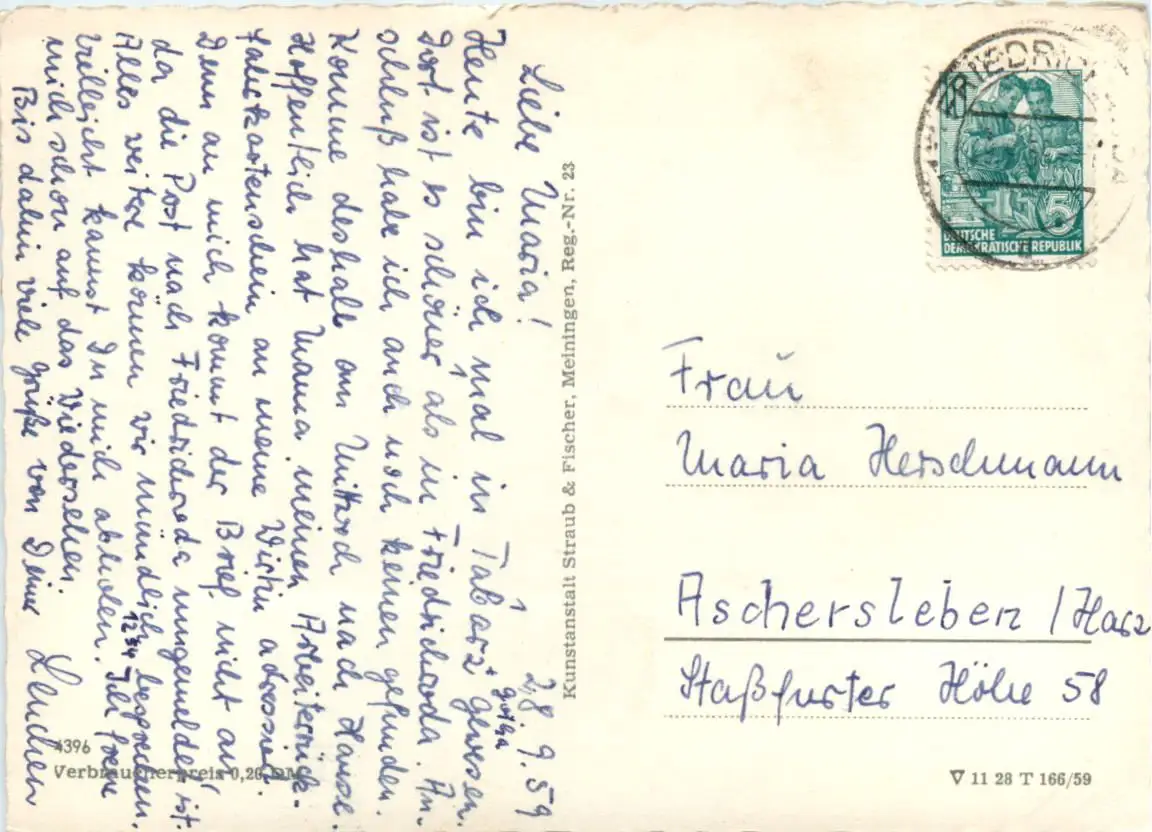 28. 9. 59
Liebe Maria!
Heute bin ich mal in Tabarz + Gotha gewesen.
Dort ist es schöner als in Friedrichroda. An-
schluß habe ich auch noch keinen gefunden.
Komme deshalb am Mittwoch nach Hause.
Hoffentlich hat Mama meinen Arbeiterrück-
fahrkartenschein an meine Wirtin adressiert.
Denn an mich kommt der Brief nicht an,
da die Post nach Friedrichroda umgemeldet ist.
Alles weitere können wir mündlich besprechen.
Vielleicht kannst Du mich abholen. 12 54 Ich freue
mich schon auf das Wiedersehen
Bis dahin viele Grüße von Deine Lenchen
Kunstanstalt Straub & Fischer, Meiningen, Reg.-Nr. 23
FRIEDRICH
5
DEUTSCHE
DEMOKRATISCHE REPUBLIK
Frau
Maria Herschmann
Aschersleben / Harz
Staßfurter Höhe 58
4396
Verbraucherpreis 0,20 DM
∇ 11 28 T 166/59